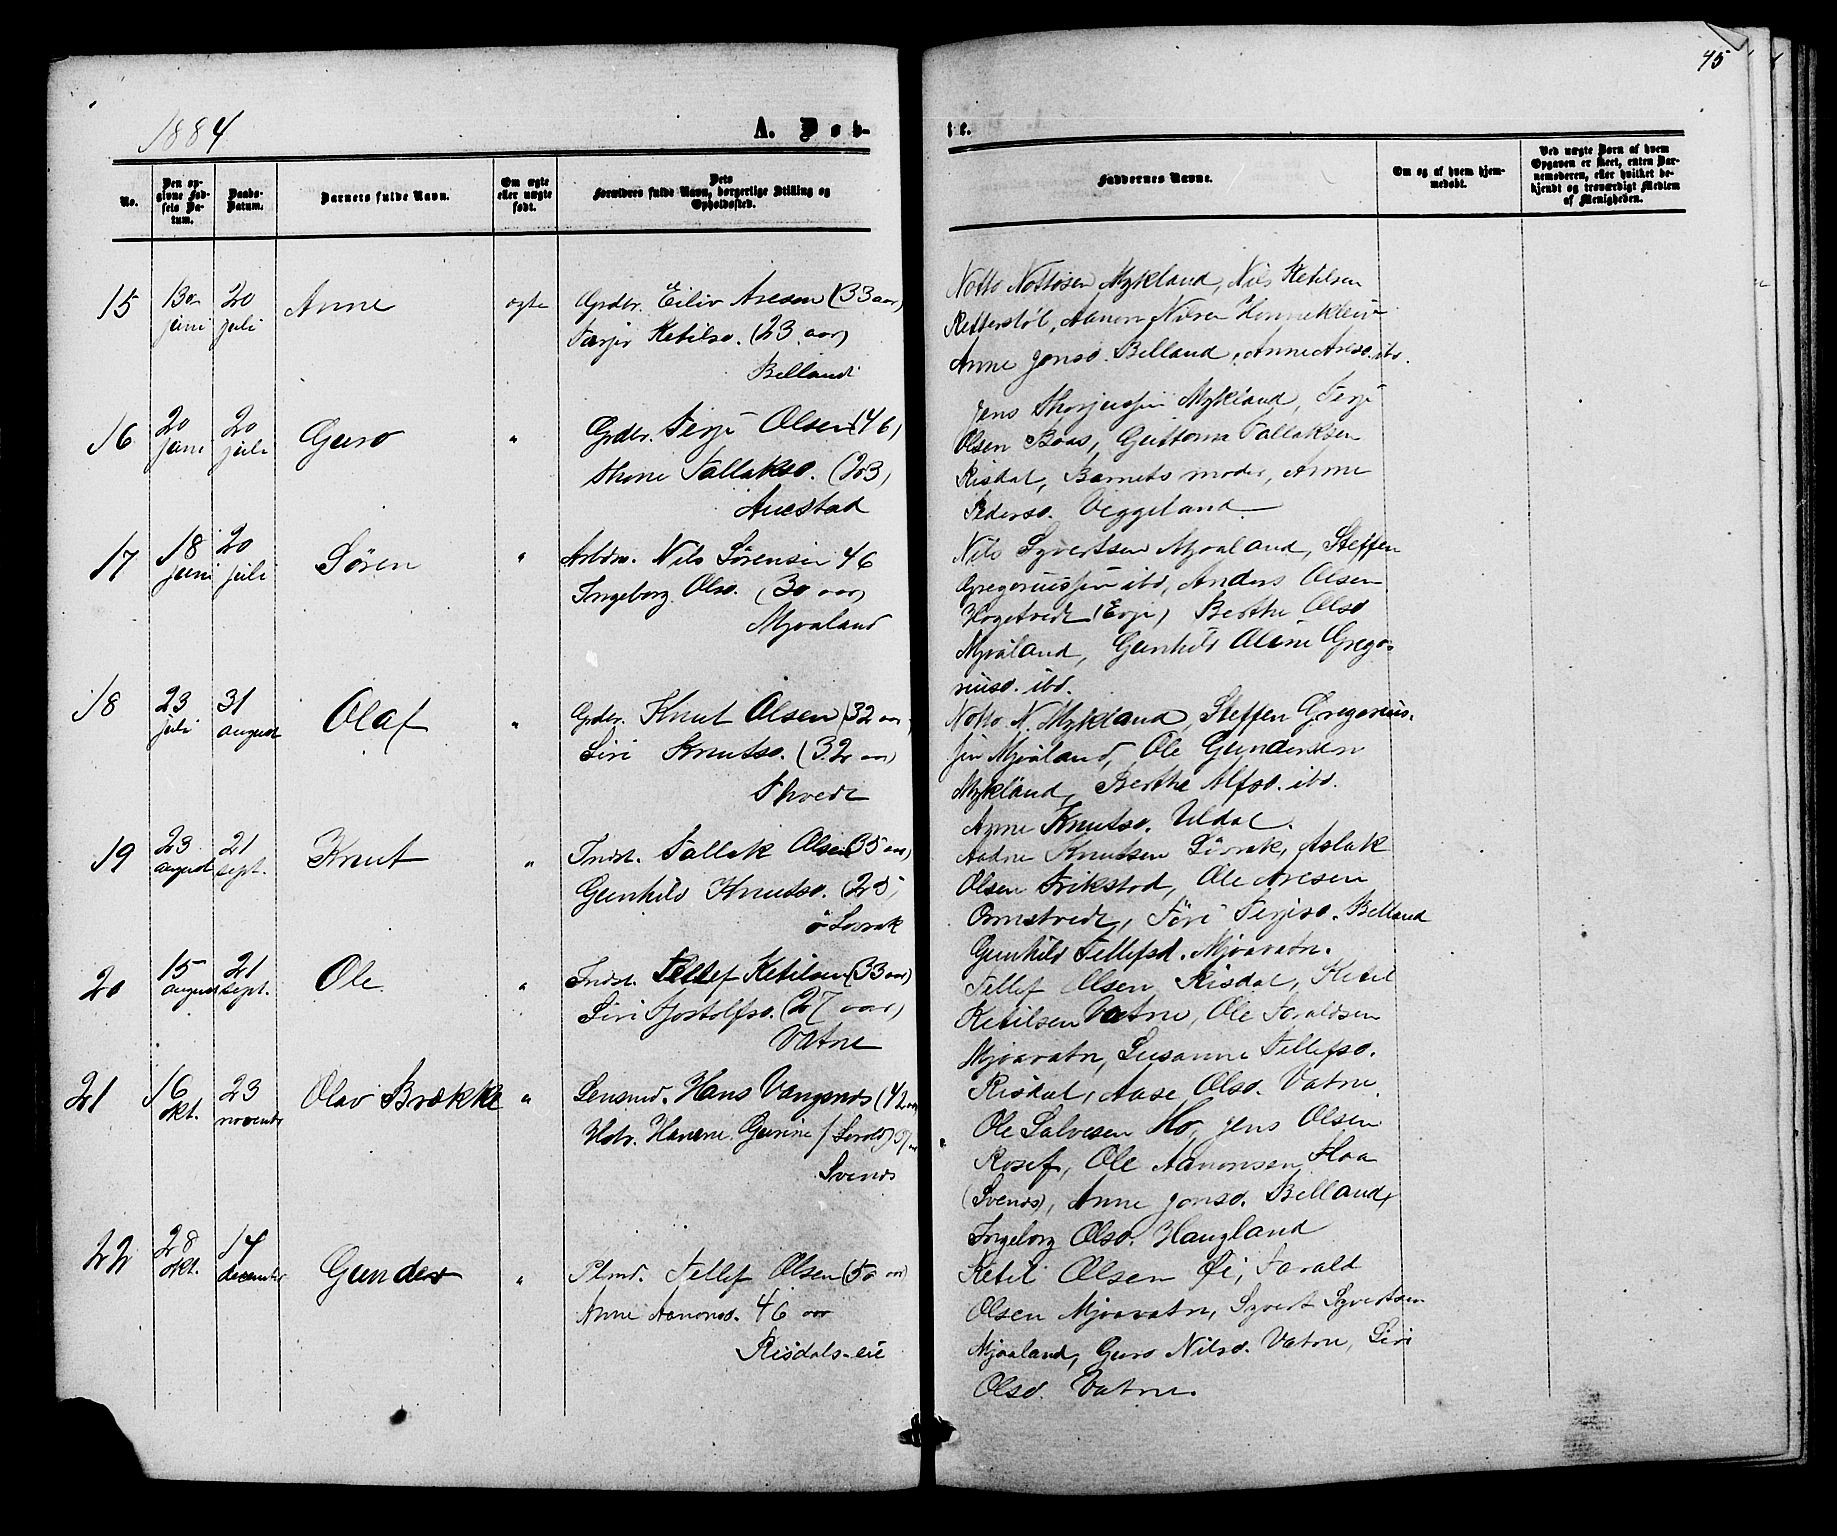 45
1884
A. Døb-
te.
No.
Den opgivne Fødsels Datum.
Daabs-Datum.
Barnets fulde Navn.
Om ægte eller uægte født.
Dets Forældres fulde Navn, borgerlige Stilling og Opholdssted.
Faddernes Navne.
Om og af hvem hjemmedøbt.
Ved uægte Børn af hvem Opgaven er skeet, enten Barnemoderen, eller hvilket bekjendt og troværdigt Medlem af Menigheden.
15 juni 20 juli Anne ægte Grdbr. Eiliv Aresen (33 aar)
Tarjer Ketilsd. (23 aar)
Belland
Notto Nottosen Mykland, Nils Ketilsen
Retterstöl, Aanon
Anne Jonsd. Belland, Anne Aresd. ibd.
16 20 juni 20 juli Guro " Grdbr. Terje Olsen (46)
Tallaksd. (23)
Auestad
Jens Mykland, Terje
Olsen Boas, Guttorm Tallaksen
Risdal, Barnets moder, Anne
Pedersd. Viggeland
17 18 juni 20 juli Sören " Arbdm. Nils Sörensen 46
Ingeborg Olsd. (30 aar)
Mjvaland
Nils Syvertsen Mjvaland, Steffen
Gregoriussen ibd, Anders Olsen
(Evje) Berthe Olsd
Mjvåland, Gunhild Olene Grego-
riusd. ibd.
18 23 juli 31 august Olaf " Grdbr. Knut Olsen (32 aar)
Siri Knutsd. (32 aar)
Notto N. Mykland, Steffen Gregorius-
sen Mjvåland, Ole Gundersen
Mykland, Berthe Alfsd. ibd.
Anne Knutsd. Uldal.
19 23 august 21 sept. Knut " Indst. Tallak Olsen (35 aar)
Gunhild Knutsd. (25)
ö Lövrak
Aadne Knutsen Lövrak, Aslak
Olsen Frikstad, Ole Aresen
Ormstvedt, Terjesd. Belland
Gunhild Tellefsd. Mjvavatn.
20 15 august 21 sept. Ole " Indst. Tellef Ketilsen (33 aar)
Siri Tjostolfsd. (27 aar)
Vatne
Tellef Olsen Risdal, Ketil
Ketilsen Vatne, Ole Taraldsen
Mjvavatn, Susanne Tellefsd.
Risdal, Aase Olsd. Vatne.
21 16 okt. 23 november Olav Brække " Lensmd. Hans Vangsnes (42 aar)
Hstr. Hanene Gurine f.
Svenes
Ole Salvesen Ho, Jens Olsen
Rosef, Ole Aanonsen
(Svenes), Anne Jonsd. Belland,
Ingeborg Olsd. Haugland
22 28 okt. 14 december Gunder " Plmd. Tellef Olsen (50 aar)
Anne Aanonsd. 46 aar
Risdals-eie
Ketil Olsen Øi, Tarald
Olsen Mjvavatn, Syvert Syvertsen
Mjvaland, Guro Nilsd. Vatne, Siri
Olsd. Vatne.